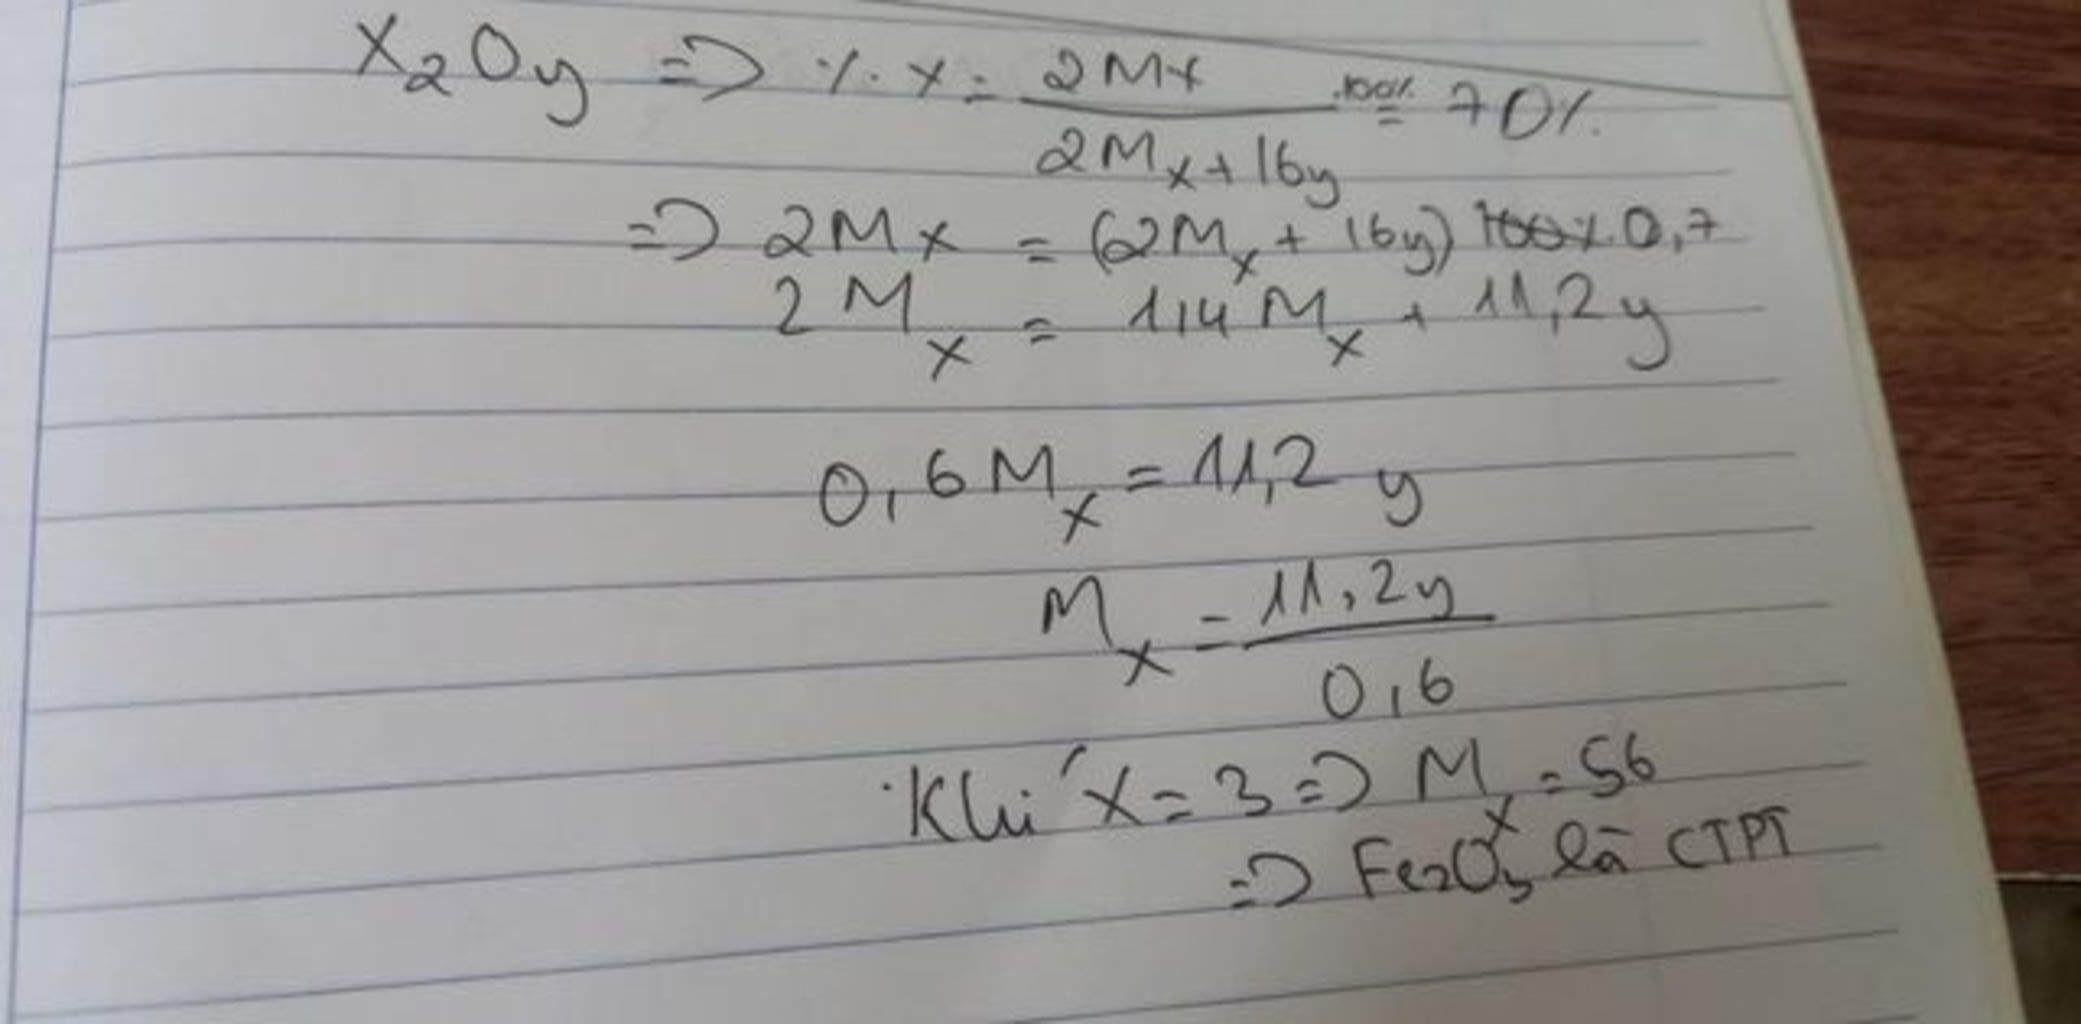 X₂Oy => %X = 2Mx / (2Mx + 16y) .100% = 70%
=> 2Mx = (2Mx + 16y) 0,7
2Mx = 1,4Mx + 11,2y
0,6Mx = 11,2y
Mx = 11,2y / 0,6
Khi x = 3 => Mx = 56
=> Fe₂O₃ là CTPT